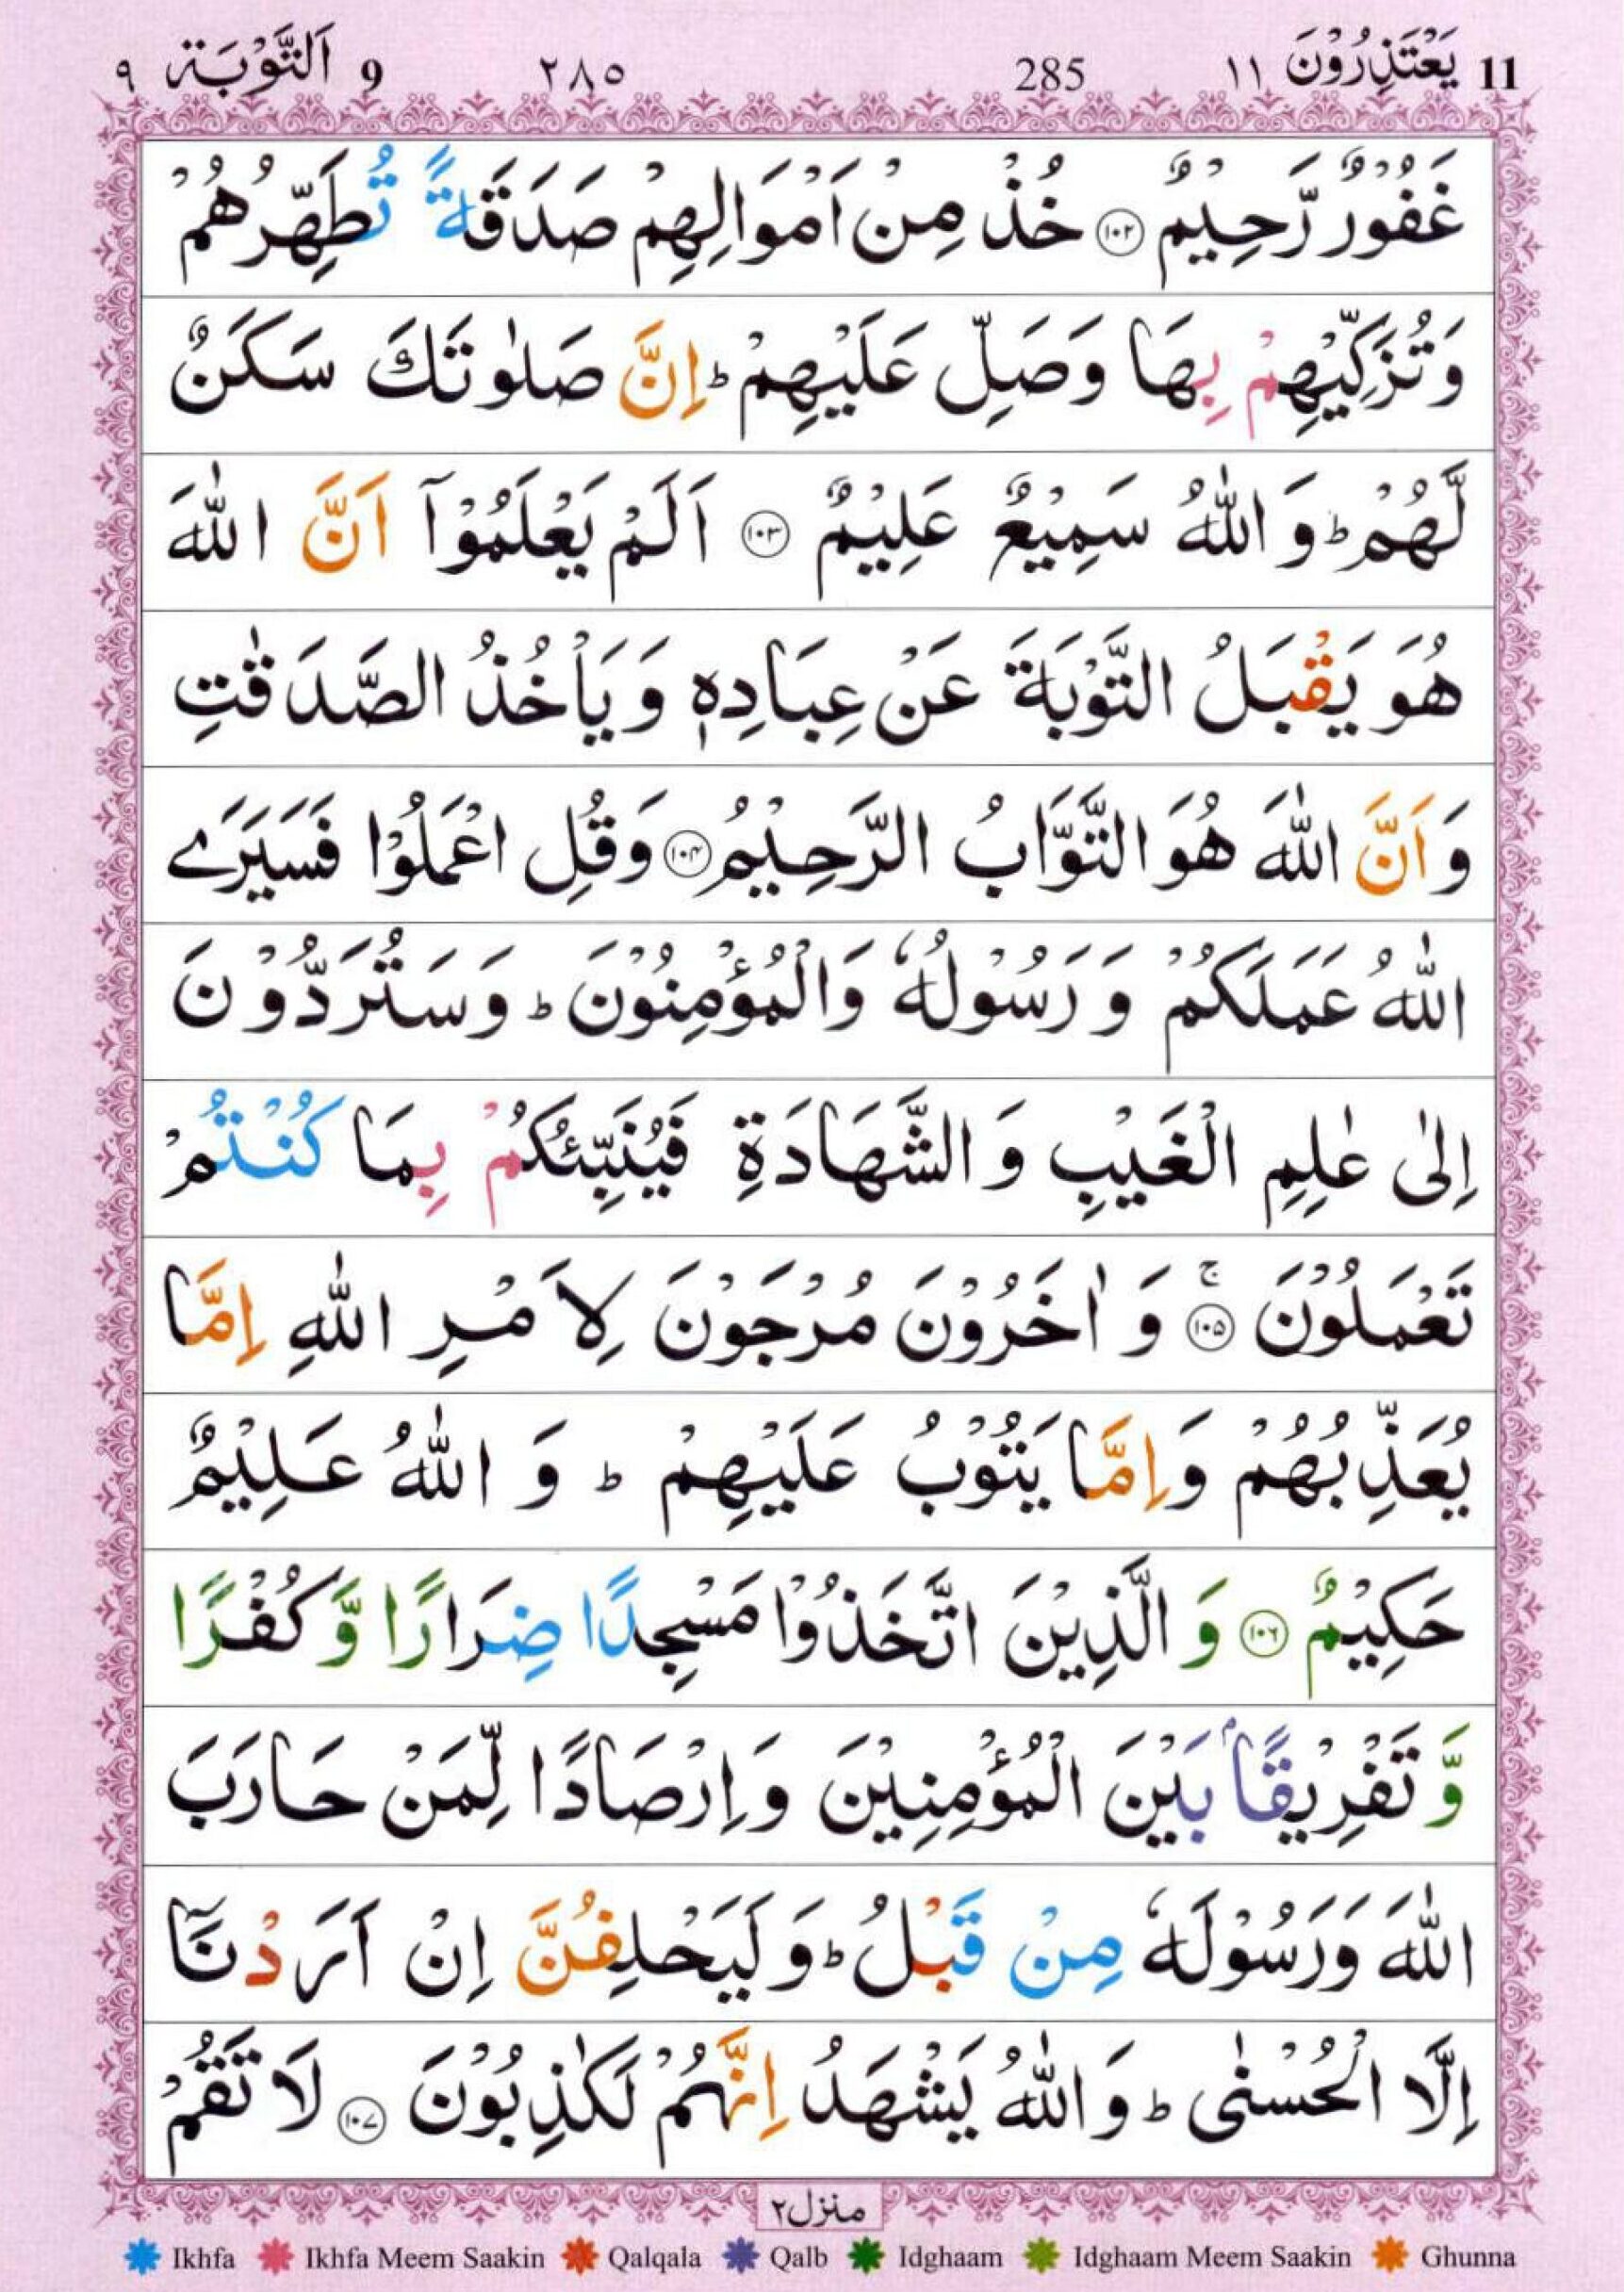 11 يَعْتَذِرُوْنَ ١١ 285 ٢٨٥ 9 اَلتَّوْبَة ٩
غَفُوْرٌ رَّحِيْمٌ ﴿۱۰۲﴾ خُذْ مِنْ اَمْوَالِهِمْ صَدَقَةً تُطَهِّرُهُمْ
وَتُزَكِّيْهِمْ بِهَا وَصَلِّ عَلَيْهِمْ ؕ اِنَّ صَلٰوتَكَ سَكَنٌ
لَّهُمْ ؕ وَ اللّٰهُ سَمِيْعٌ عَلِيْمٌ ﴿۱۰۳﴾ اَلَمْ يَعْلَمُوْۤا اَنَّ اللّٰهَ
هُوَ يَقْبَلُ التَّوْبَةَ عَنْ عِبَادِهٖ وَيَاْخُذُ الصَّدَقٰتِ
وَ اَنَّ اللّٰهَ هُوَ التَّوَّابُ الرَّحِيْمُ ﴿۱۰۴﴾ وَقُلِ اعْمَلُوْا فَسَيَرَے
اللّٰهُ عَمَلَكُمْ وَ رَسُوْلُهٗ وَالْمُؤْمِنُوْنَ ؕ وَسَتُرَدُّوْنَ
اِلٰى عٰلِمِ الْغَيْبِ وَ الشَّهَادَةِ فَيُنَبِّئُكُمْ بِمَا كُنْتُمْ
تَعْمَلُوْنَ ﴿۱۰۵﴾ ۚ وَ اٰخَرُوْنَ مُرْجَوْنَ لِاَمْرِ اللّٰهِ اِمَّا
يُعَذِّبُهُمْ وَ اِمَّا يَتُوْبُ عَلَيْهِمْ ؕ وَ اللّٰهُ عَلِيْمٌ
حَكِيْمٌ ﴿۱۰۶﴾ وَ الَّذِيْنَ اتَّخَذُوْا مَسْجِدًا ضِرَارًا وَّ كُفْرًا
وَّ تَفْرِيْقًۢا بَيْنَ الْمُؤْمِنِيْنَ وَ اِرْصَادًا لِّمَنْ حَارَبَ
اللّٰهَ وَرَسُوْلَهٗ مِنْ قَبْلُ ؕ وَ لَيَحْلِفُنَّ اِنْ اَرَدْنَاۤ
اِلَّا الْحُسْنٰى ؕ وَ اللّٰهُ يَشْهَدُ اِنَّهُمْ لَكٰذِبُوْنَ ﴿۱۰۷﴾ لَا تَقُمْ
منزل۲
Ikhfa Ikhfa Meem Saakin Qalqala Qalb Idghaam Idghaam Meem Saakin Ghunna